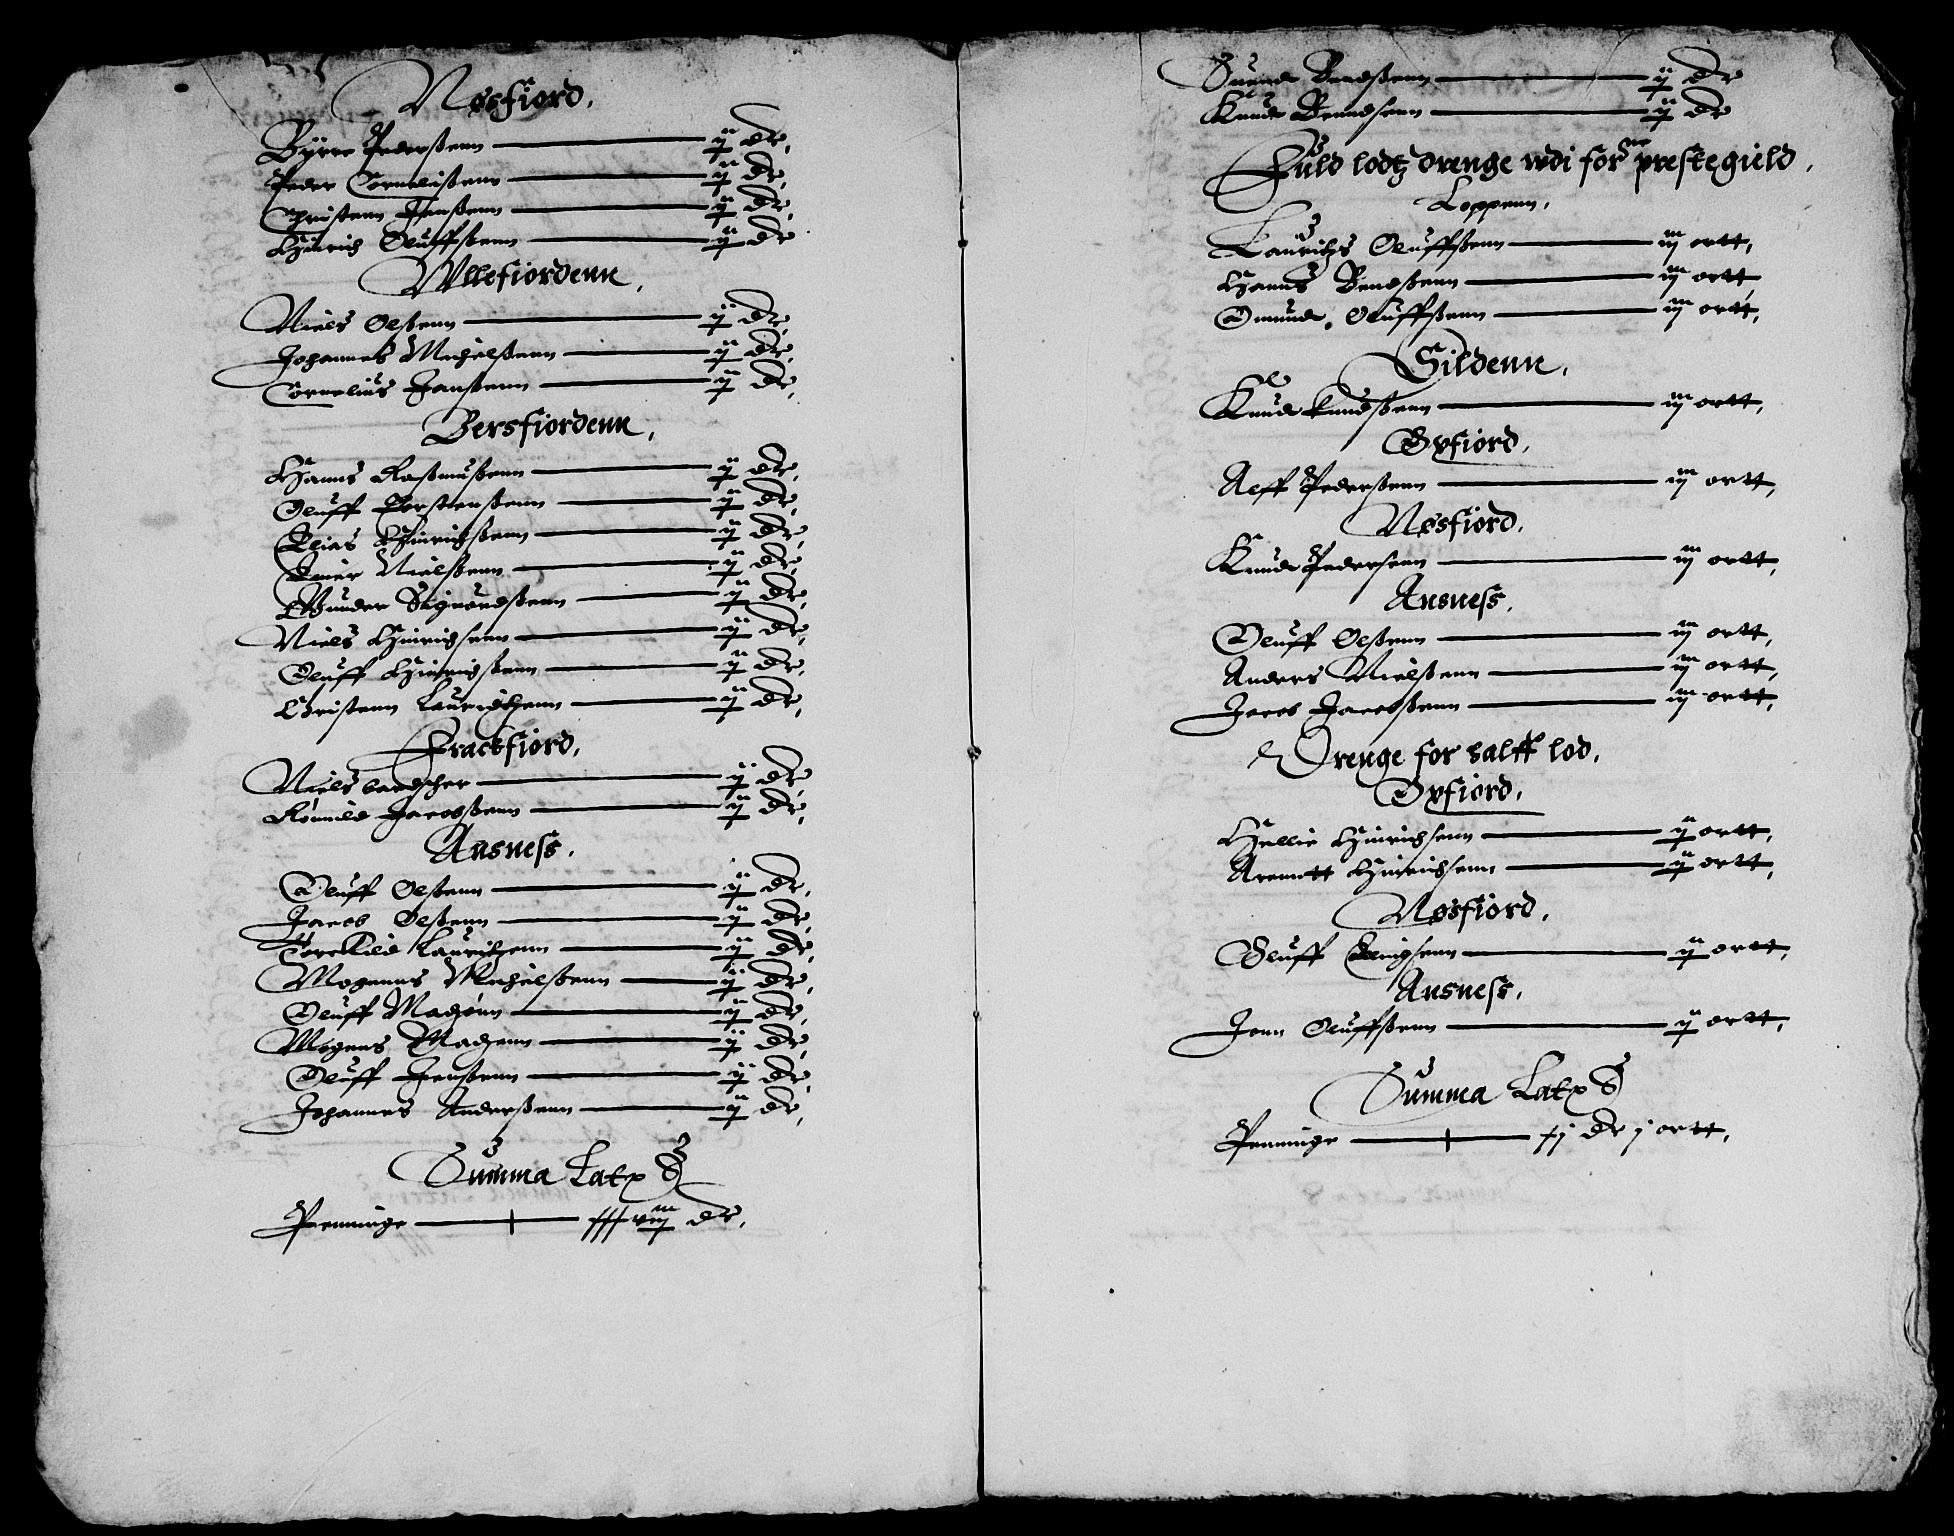 Nøsfiord,
Byrre Pederßenn — ij dr,
Peder Cornelißenn — ij dr,
Christenn Jenßenn — ij dr,
Hinrich Oluffßenn — ij dr
Ullefiordenn,
Niels Olßenn — ij dr,
Johannes Michelßenn — ij dr,
Cornelius Janßenn — ij dr,
Bersfiordenn,
Hanns Raßmußenn — ij dr,
Oluff Torstenßenn — ij dr,
Elias Hinrichßenn — ij dr,
Nielßenn — ij dr,
Gunder Sigwordßenn — ij dr,
Niels Hinrichsenn — ij dr,
Oluff Hinrichßenn — ij dr,
Christenn Lauridtzenn — ij dr,
Frackfiord,
Niels — ij dr,
Jacobßenn — ij dr,
Ansness,
Oluff Olßenn — ij dr,
Jacob Olßenn — ij dr,
Torckild Lauritzenn — ij dr,
Mogenns Michelßenn — ij dr,
Oluff Madzönn — ij dr,
Mogens Madzenn — ij dr,
Oluff Jenßenn — ij dr,
Johannes Anderßenn — ij dr,
Summa Lateris
Penninge — dr,
Suend Bendßenn — ij dr
Knud Bendsenn — ij dr
Fuld lodtz drenge udi forne prestegield,
Loppenn,
Lauritz Oluffßenn — iij ortt,
Hanns Bendßenn — iij ortt,
Omund Oluffßenn — iij ortt,
Sildenn,
Knud Knudßenn — iij ortt,
Øxfiord,
Aeff Pederßenn — iij ortt,
Nøsfiord,
Knud Pedersenn — iij ortt,
Ansness,
Oluff Olßenn — iij ortt,
Anders Nielßenn — iij ortt,
Jacob Jacobßenn — iij ortt,
Drenge for halff lod,
Øxfiord,
Hellie Hinrichsenn — ij ortt,
Arenntt Hinrichsenn — ij ortt,
Nøsfiord,
Oluff Ellingsenn — ij ortt,
Ansness,
Jonn Oluffßenn — ij ortt,
Summa Lateris
Penninge — xj dr j ortt,